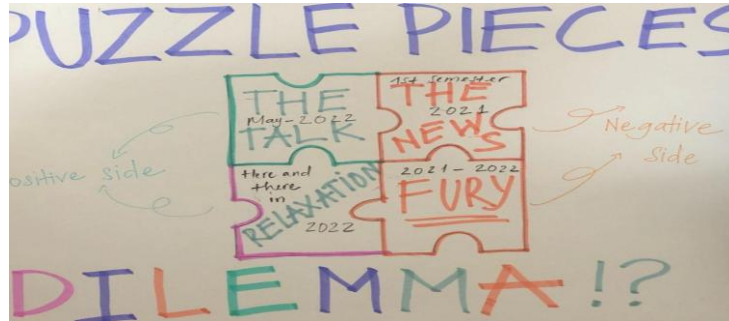 PUZZLE PIECES
THE
May-2022
TALK
1st semester
THE
2021
NEWS
Positive side
Negative
Side
Here and
there
in
RELAXATION
2022
2021-2022
FURY
DILEMMA!?